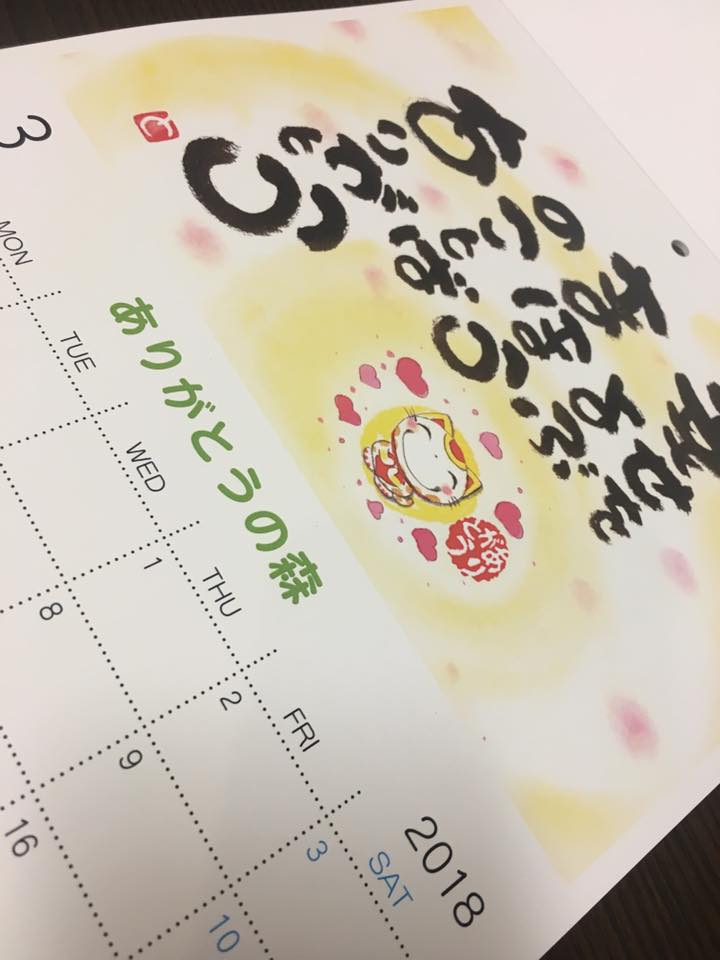 幸せを
よぶ
まほう
のことば
ありがとう
ありがとうの森
3
2018
MON
TUE
WED
THU
FRI
SAT
1
2
3
8
9
10
16